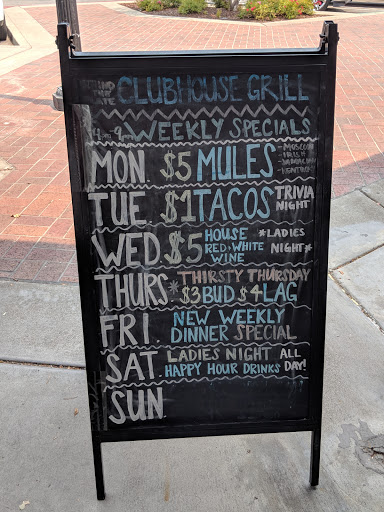 CLUBHOUSE GRILL
WEEKLY SPECIALS
MON. $5 MULES -MOSCOW -IRISH -JAMAICAN -KENTUCKY
TUE $1 TACOS TRIVIA NIGHT
WED $5 HOUSE RED·WHITE WINE *LADIES NIGHT*
THURS* THIRSTY THURSDAY
$3 BUD $4 LAG
FRI. NEW WEEKLY DINNER SPECIAL
SAT. LADIES NIGHT ALL DAY!
HAPPY HOUR DRINKS
SUN